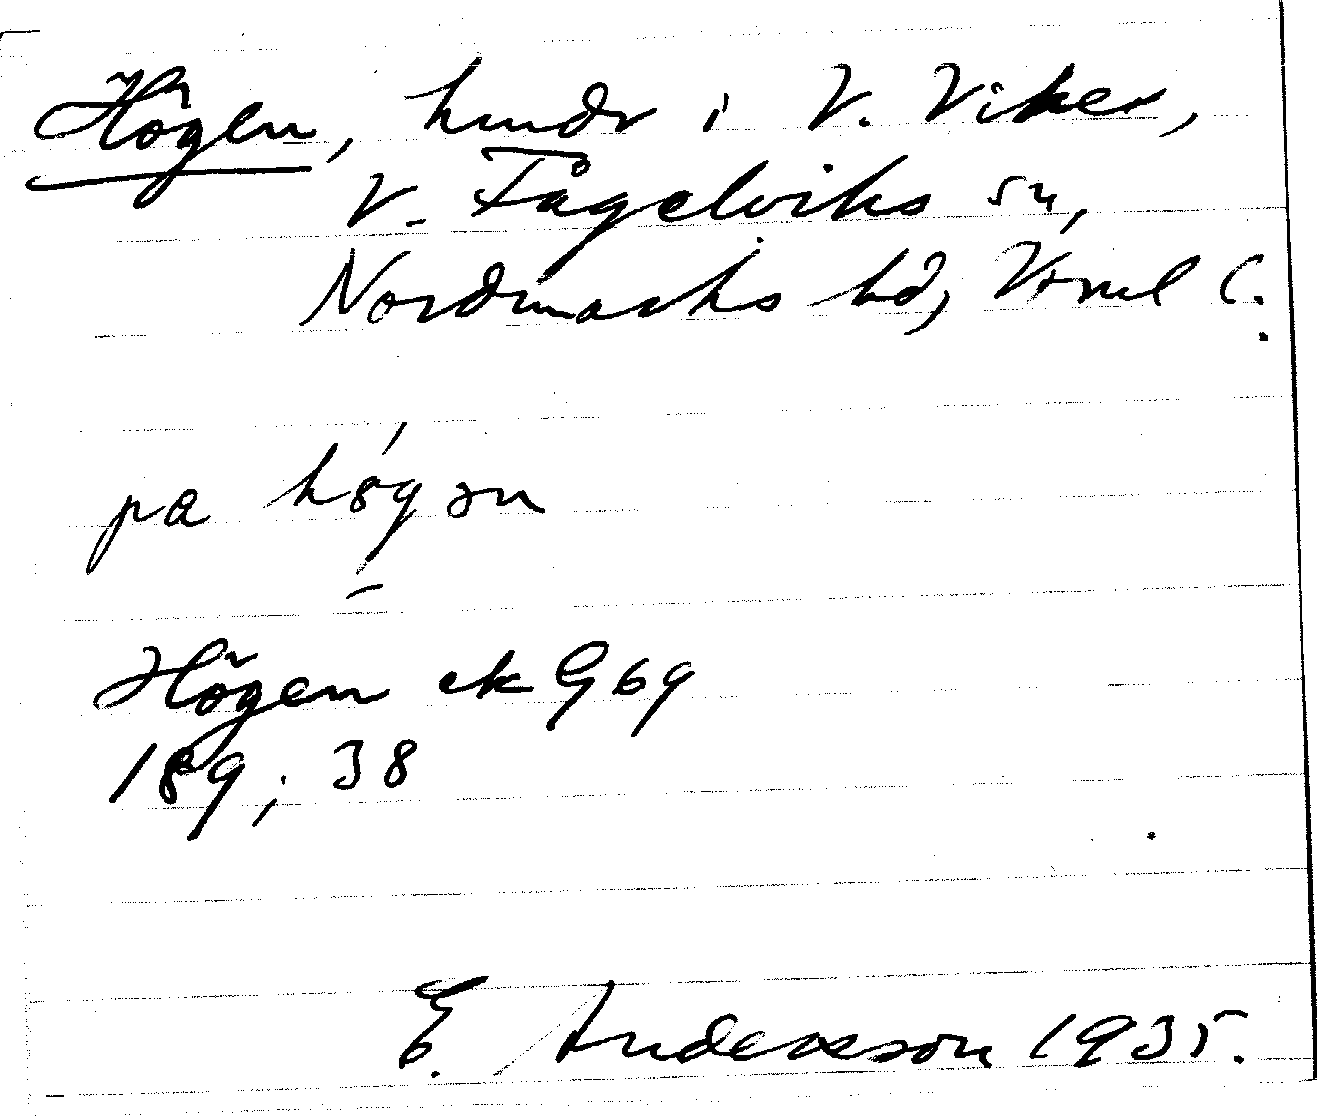 Högen, hmdr i V. Viker,
V. Fågelviks sn,
Nordmarks hd, Vrml C.
pa høgən
Högen ek G 69
189; 38
E. Andersson 1935.